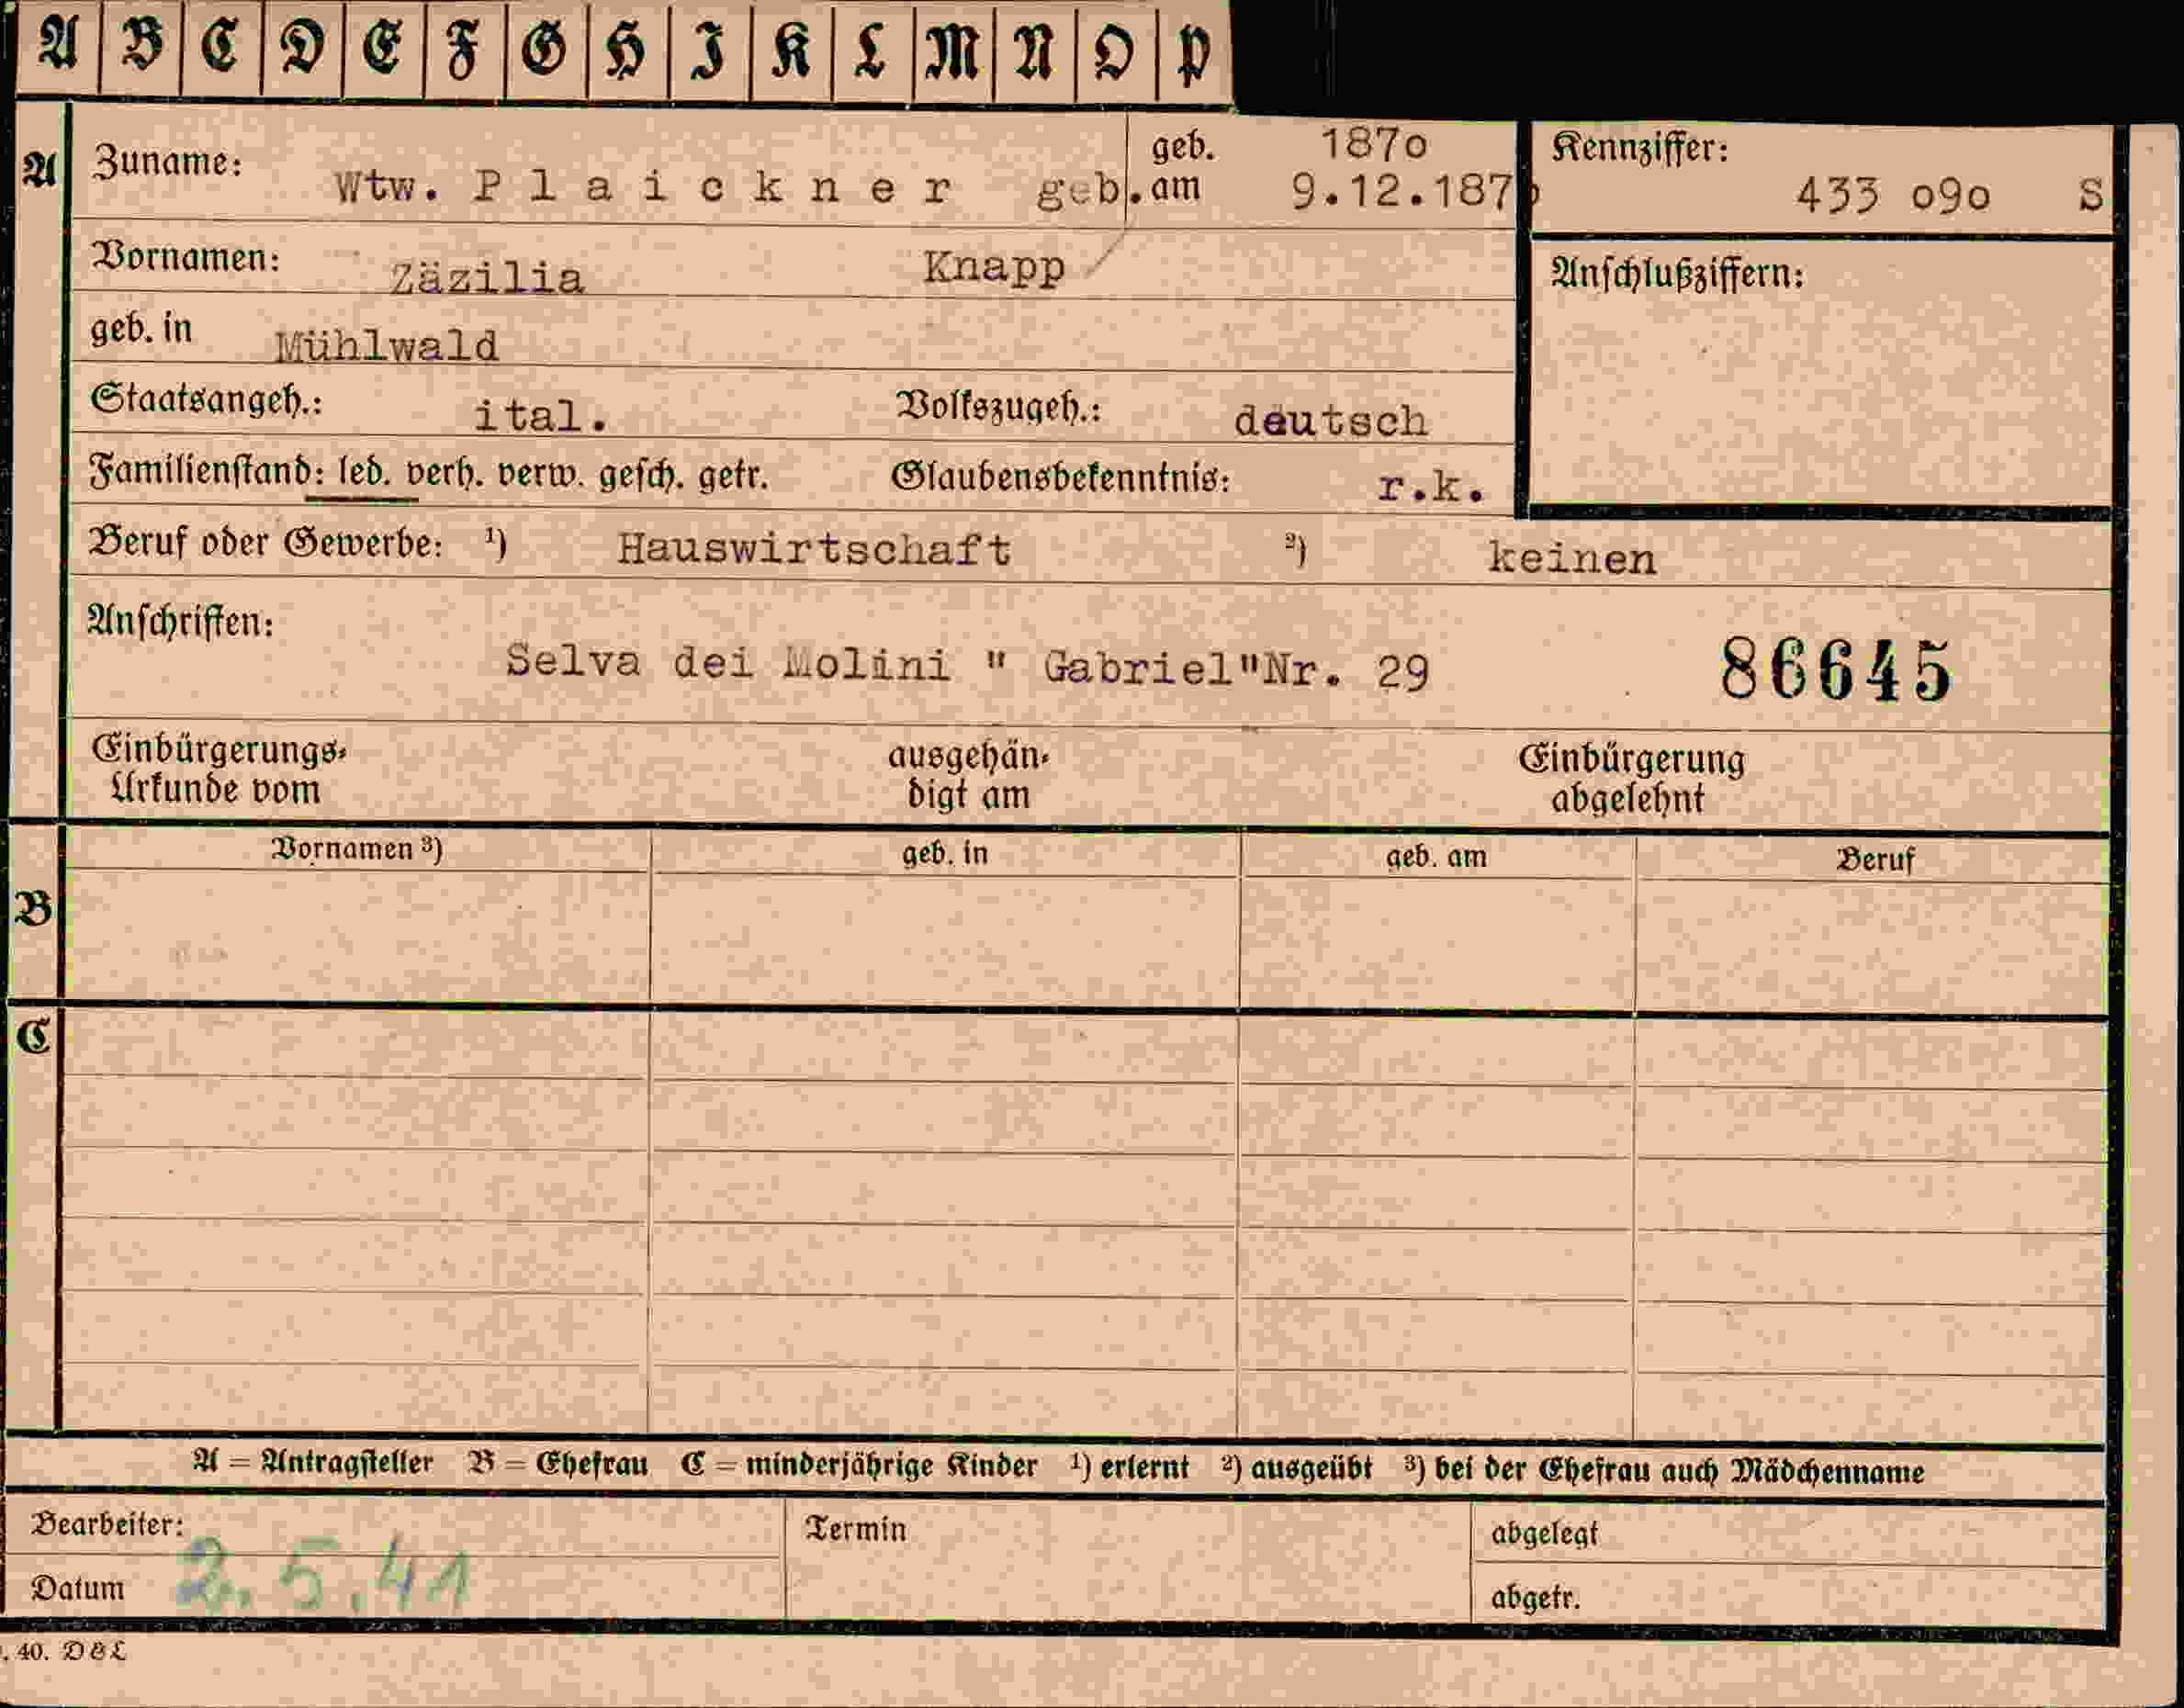 A B C D E F G H I K L M N O P
A Zuname: Wtw. Plaickner geb. geb. am 1870 9.12.187
Kennziffer: 433 o9o S
Vornamen: Zäzilia Knapp
Anschlußziffern:
geb. in Mühlwald
Staatsangeh.: ital. Volkszugeh.: deutsch
Familienstand: led. verh. verw. gesch. getr. Glaubensbekenntnis: r.k.
Beruf oder Gewerbe: ¹) Hauswirtschaft ²) keinen
Anschriften:
Selva dei Molini " Gabriel"Nr. 29 86645
Einbürgerungs- ausgehän- Einbürgerung
Urkunde vom digt am abgelehnt
Vornamen ³) geb. in geb. am Beruf
B
C
A = Antragsteller B = Ehefrau C = minderjährige Kinder ¹) erlernt ²) ausgeübt ³) bei der Ehefrau auch Mädchenname
Bearbeiter: Termin abgelegt
Datum 2.5.41 abgetr.
. 40. D&L